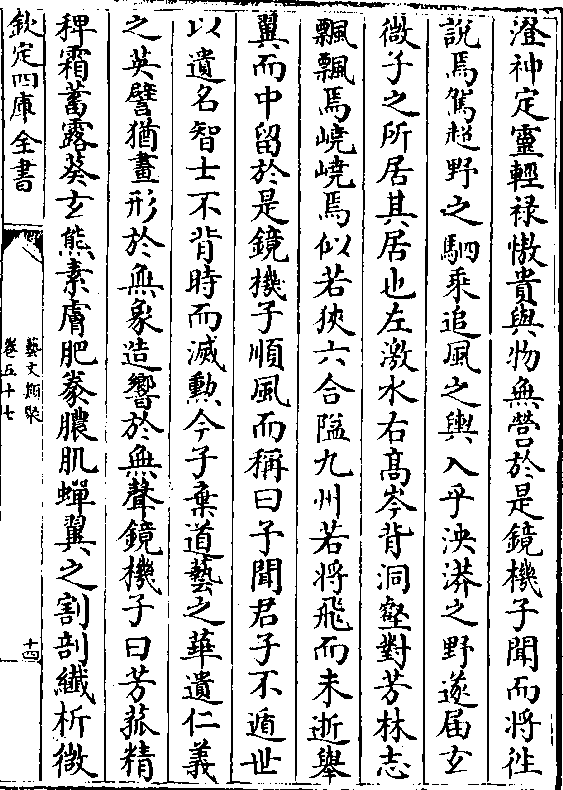 澄神定靈輕禄慠貴與物無營於是鏡機子聞而將徃
說焉駕超野之駟乘追風之輿入乎泱漭之野遂届𤣥
微子之所居其居也左激水右髙岑背洞壑對芳林志
飄飄焉嶢嶢焉似若狹六合隘九州若將飛而未逝舉
翼而中留於是鏡機子順風而稱曰予聞君子不遁世
以遺名智士不背時而滅勲今子棄道藝之華遺仁義
之英譬猶畫形於無象造響於無聲鏡機子曰芳菰精
稗霜蓄露葵𤣥熊素膚肥豢膿肌蟬翼之割剖纎析微
欽定四庫全書
藝文類聚
卷五十七
十四